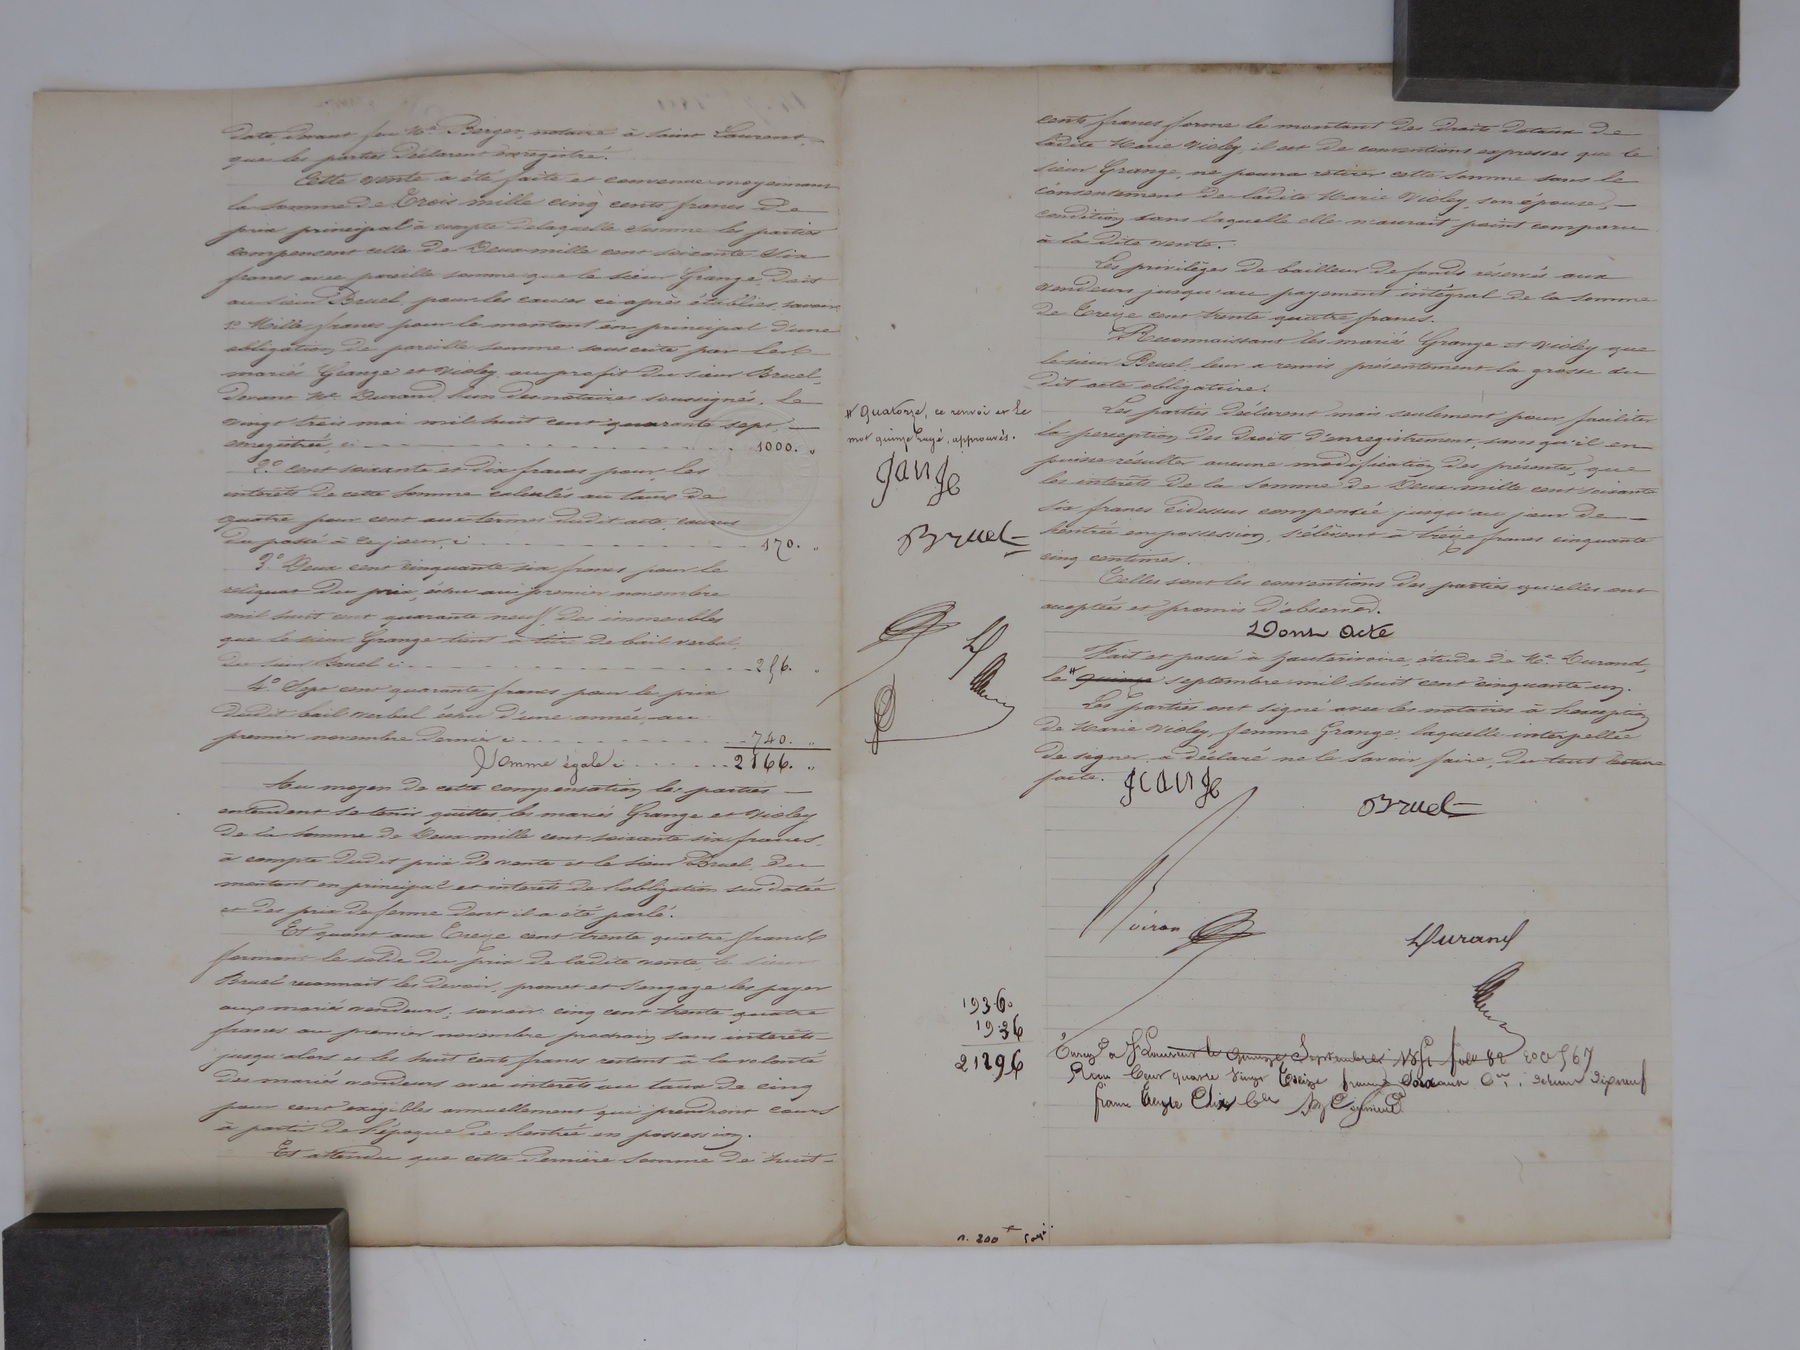 date, devant feu Me Berger, notaire à Saint Laurent,
que les parties déclarent enregistré.
Cette vente a été faite et convenue moyennant
la somme de Trois mille cinq cents francs de
prix principal à compte de laquelle somme les parties
compensent celle de Deux mille cent soixante six
francs avec pareille somme que le sieur Grange doit
au sieur Bruel, pour les causes ci après établies, savoir:
1o Mille francs pour le montant en principal d'une
obligation de pareille somme souscrite par les
mariés Grange et Violey au profit du sieur Bruel,
devant Me Durand, l'un des notaires soussignés, le
vingt trois mai mil huit cent quarante sept,
enregistré, ci 1000. "
2o cent soixante et dix francs pour les
intérêts de cette somme calculés au taux de
quatre pour cent aux termes dudit acte, courus
du passé à ce jour, ci 170. "
3o Deux cent cinquante six francs pour le
reliquat du prix, échu au premier novembre
mil huit cent quarante neuf, des immeubles
que le sieur Grange tient à titre de bail verbal
du sieur Bruel ci 256. "
4o Sept cent quarante francs pour le prix
dudit bail verbal échu d'une année au
premier novembre dernier ci 740. "
Somme égale ci 2166. "
Au moyen de cette compensation les parties
entendent se tenir quittes les mariés Grange et Violey
de la somme de Deux mille cent soixante six francs
à compte dudit prix de vente et le sieur Bruel du
montant en principal et intérêts de l'obligation sus datée
et des prix de ferme dont il a été parlé.
Et quant aux Treize cent trente quatre francs
formant le solde du prix de ladite vente, le sieur
Bruel reconnait les devoir, promet et s'engage les payer
aux mariés vendeurs, savoir: cinq cent trente quatre
francs au premier novembre prochain sans intérêts
jusqu'alors et les huit cents francs restant à la volonté
des mariés vendeurs avec intérêts au taux de cinq
pour cent exigibles annuellement qui prendront cours
à partir de l'époque de l'entrée en possession.
Et attendu que cette dernière somme de huit
cents francs forme le montant des droits dotaux de
ladite Marie Violey, il est de conventions expresses que le
sieur Grange, ne pourra retirer cette somme sans le
consentement de ladite Marie Violey, son épouse,
condition sans laquelle elle n'aurait point comparu
à la dite vente.
Les privilèges de bailleur de fonds réservés aux
vendeurs jusqu'au payement intégral de la somme
de Treize cent trente quatre francs.
Reconnaissant les mariés Grange et Violey que
le sieur Bruel leur a remis présentement la grosse du
dit acte obligatoire.
Les parties déclarent mais seulement pour faciliter
la perception des droits d'enregistrement, sans qu'il en
puisse résulter aucune modification des présentes, que
les intérêts de la somme de Deux mille cent soixante
six francs cidessus compensée jusqu'au jour de
l'entrée en possession, s'élèvent à treize francs cinquante
cinq centimes.
Telles sont les conventions des parties qu'elles ont
acceptées et promis d'observer.
Dont Acte
Fait et passé à hauterivoire, étude de Me Durand,
le # quinze septembre mil huit cent cinquante un.
Les parties ont signé avec les notaires à l'exception
de Marie Violey, femme Grange, laquelle interpellée
de signer, a déclaré ne le savoir faire, du tout lecture
faite.
# Quatorze, ce renvoi et le
mot quinze rayé, approuvés.
Bruel
Bruel
Voiron
Durand
19360
1936
21296
Enregé à St Laurent le quinze Septembre 1851 folio 82
Reçu Cent quatre vingt Treize francs Soixante Cmes, décime dixneuf
francs
n. 200